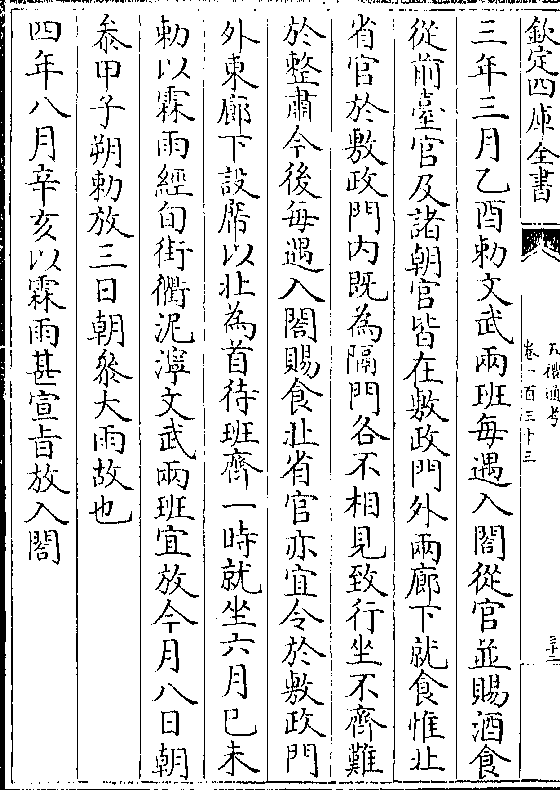 欽定四庫全書
五禮通考
卷一百三十三
三十二
三年三月乙酉勅文武兩班每遇入閤從官並賜酒食
從前臺官及諸朝官皆在敷政門外兩廊下就食惟北
省官於敷政門内既為隔門各不相見致行坐不齊難
於整肅今後每遇入閤賜食北省官亦宜令於敷政門
外東廊下設席以北為首待班齊一時就坐六月巳未
勅以霖雨經旬街衢泥濘文武兩班宜放今月八日朝
叅甲子朔勅放三日朝叅大雨故也
四年八月辛亥以霖雨甚宣旨放入閤